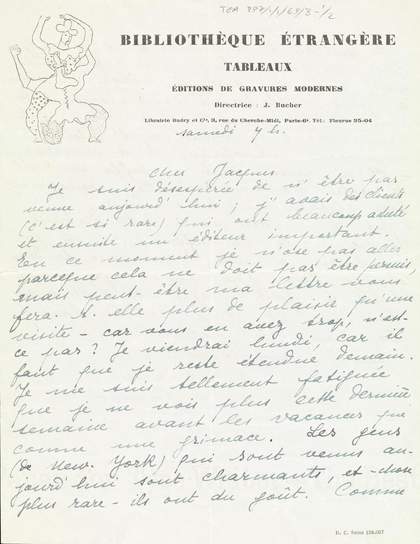 TGA 897/1/1/63/3-1/2
BIBLIOTHÈQUE ÉTRANGÈRE
TABLEAUX
ÉDITIONS DE GRAVURES MODERNES
Directrice : J. Bucher
Librairie Budry et Cie, 3, rue du Cherche-Midi, Paris-6e. Tél : Fleurus 35-04
samedi 7 h.
Cher Jacques
Je suis désespérée de n'être pas
venue aujourd'hui ; j'avais des clients
(c'est si rare) qui ont beaucoup acheté
et ensuite un éditeur important.
En ce moment je n'ose pas aller
parceque cela ne doit pas être permis
mais peut-être ma lettre vous
fera-t-elle plus de plaisir qu'une
visite - car vous en avez trop, n'est-
ce pas ? Je viendrai lundi, car il
faut que je reste étendue demain.
Je me suis tellement fatiguée
que je ne vois plus cette dernière
semaine avant les vacances que
comme une grimace. Les gens
(de New-York) qui sont venus au-
jourd'hui sont charmants, et - chose
plus rare - ils ont du goût. Comme
R. C. Seine 124.057